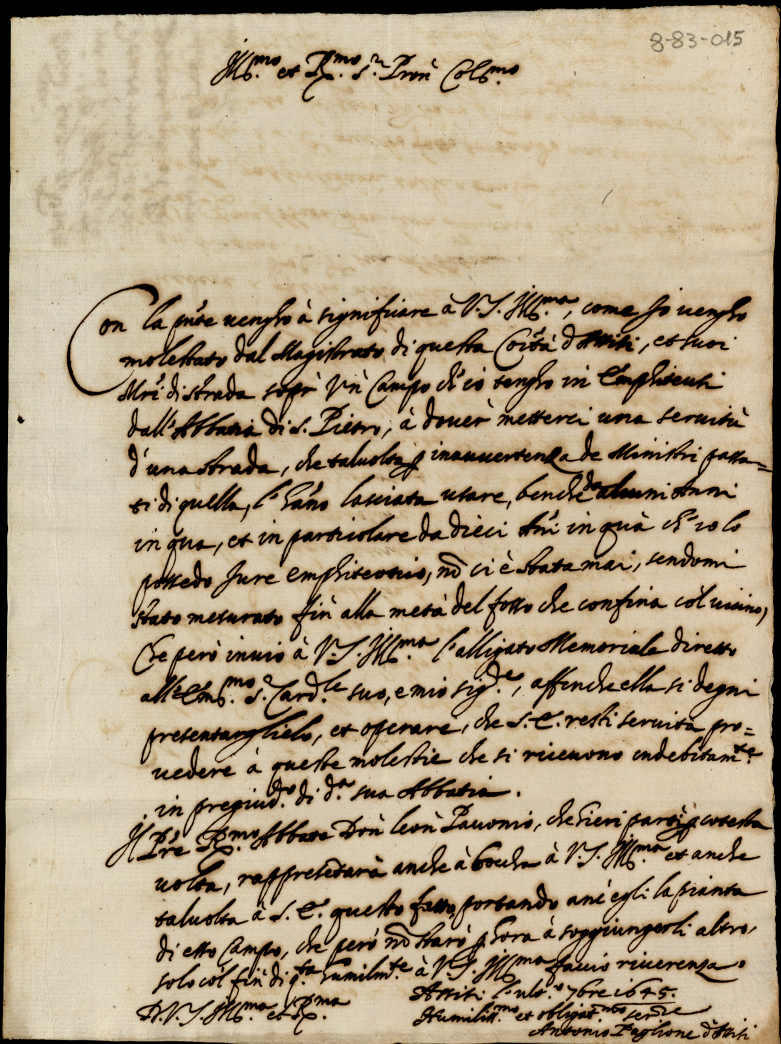 8-83-015
Ill.mo et R.mo S.r Pron Col.mo
Con la pñte uengho à significare à V.S. Ill.ma, come Io uengho
molestato dal Magistrato di questa Città d'Assisi, et suoi
Mri di strada sopr' un Campo ch'io tengho in Emphiteusi
dall'Abbatia di S. Pietro, à douer metterci una seruitù
d'una strada, che taluolta p inauuertenza de Ministri passa=
ti di quella, l'hãno lasciata usare, benche da alcuni Anni
in qua, et in particolare da dieci Añi in quà ch'io lo
possedo Jure emphiteotico, nõ ci è stata mai, sendomi
stato mesurato fin alla metà del fosso che confina col uicino,
Che però inuio à V.S. Ill.ma l'alligato Memoriale diretto
all'Em.mo S.r Card.le suo, e mio sig.re, affinche ella si degni
presentarglielo, et operare, che S.E. resti seruita pro=
uedere à queste molestie che si riceuono indebitam.te
in pregiud.o di d.a sua Abbatia.
Il Pre R.mo Abbate Don Leon Pauonio, che hieri partì p cotesta
uolta, rappresẽtarà anche à boccha à V.S. Ill.ma et anche
taluolta à S.E. questo fatto, portando anc'egli la pianta
di esso Campo, che però nõ starò p hora à soggiungerli altro,
solo col fin di q.ta humilm.te à V.S. Ill.ma faccio riuerenza.
Assisi l'ult.o 7bre 1645.
D. V.S. Ill.ma et R.ma
Humiliss.mo et obligat.mo ser.re
Antonio Paglione d'Assisi